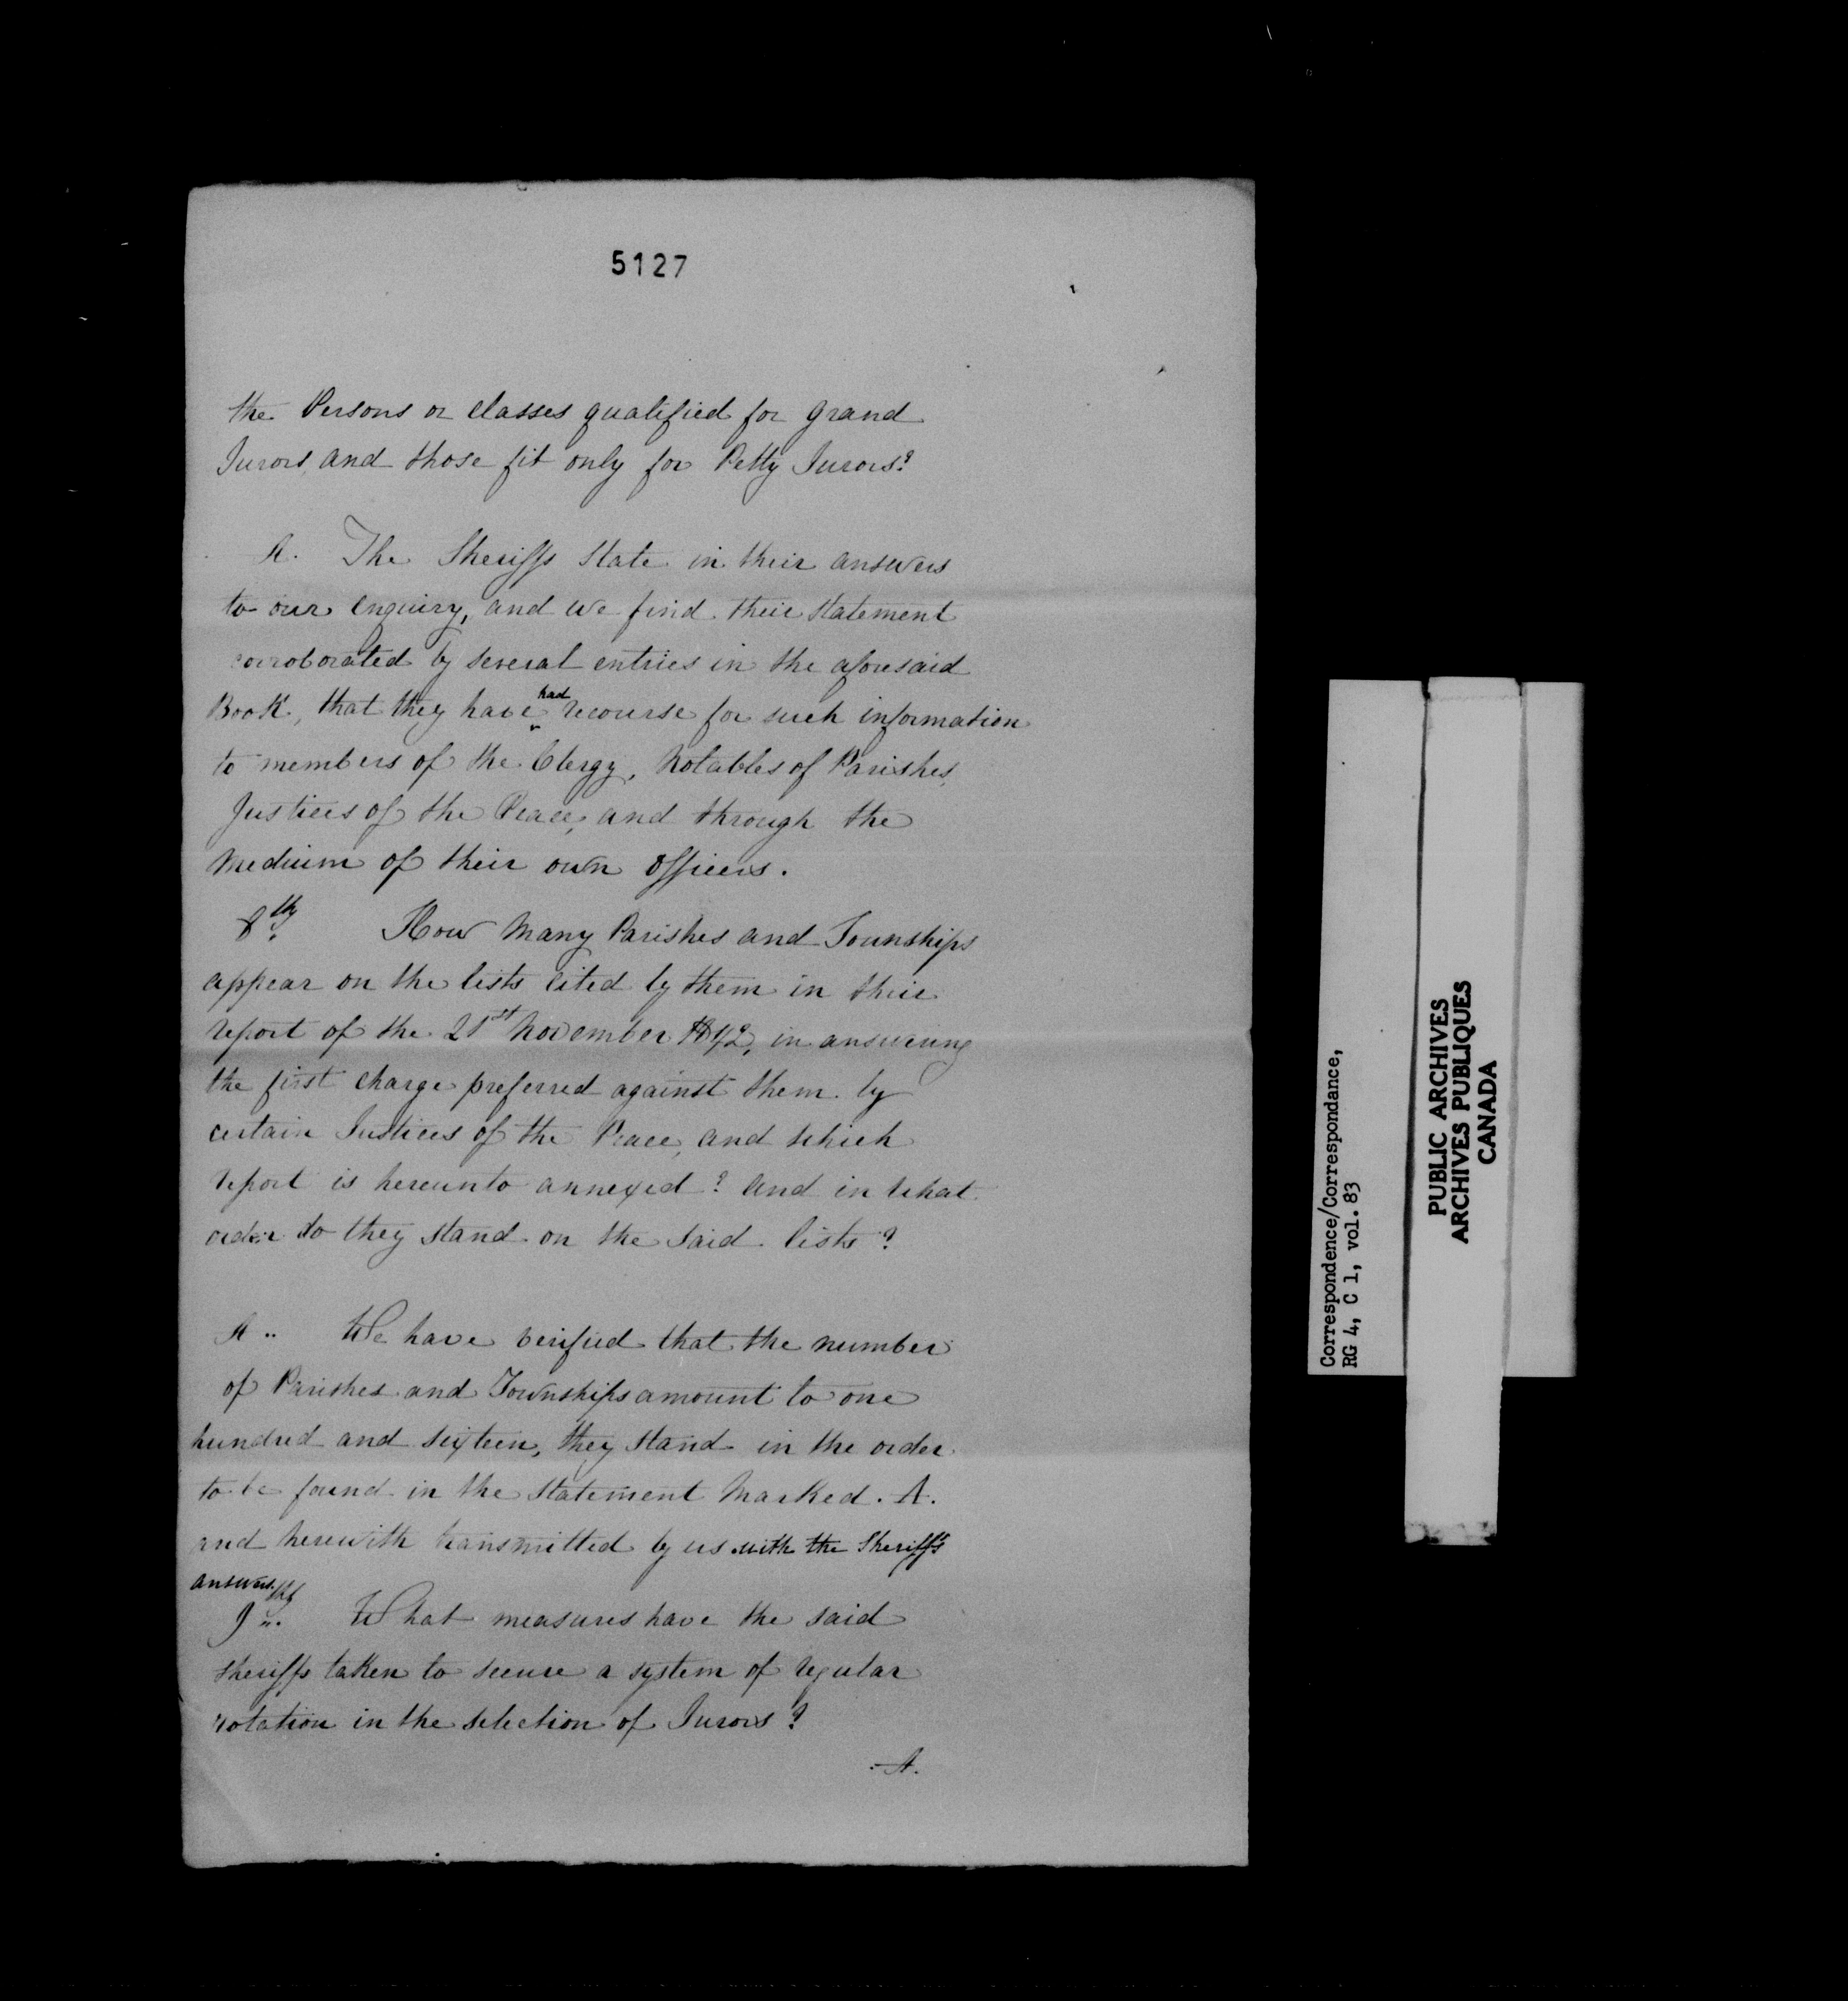 5127
the Persons or classes qualified for Grand
Jurors, and those fit only for Petty Jurors?
A. The Sheriffs State in their answers
to our Enquiry, and we find their statement
corroborated by several entries in the aforesaid
Book, that they have had recourse for such information
to members of the Clergy, Notables of Parishes,
Justices of the Peace, and through the
Medium of their own Officers.
8th. How Many Parishes and Townships
appear on the lists cited by them in their
report of the 21st November 1842, in answering
the first charge preferred against them by
certain Justices of the Peace, and which
report is hereunto annexed? and in what
order do they stand on the said lists?
A.. We have verified that the number
of Parishes and Townships amount to one
hundred and sixteen, they stand in the order
to be found in the statement Marked. A.
and herewith transmitted by us with the Sheriff's
answers.
9th. What measures have the said
sheriffs taken to secure a system of regular
rotation in the selection of Jurors?
A.
Correspondence/Correspondance,
RG 4, C 1, vol. 83
PUBLIC ARCHIVES
ARCHIVES PUBLIQUES
CANADA